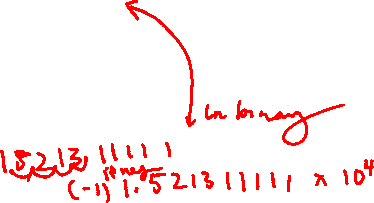 in binary
15213 11111
(-1) 1.521311111 x 10^4